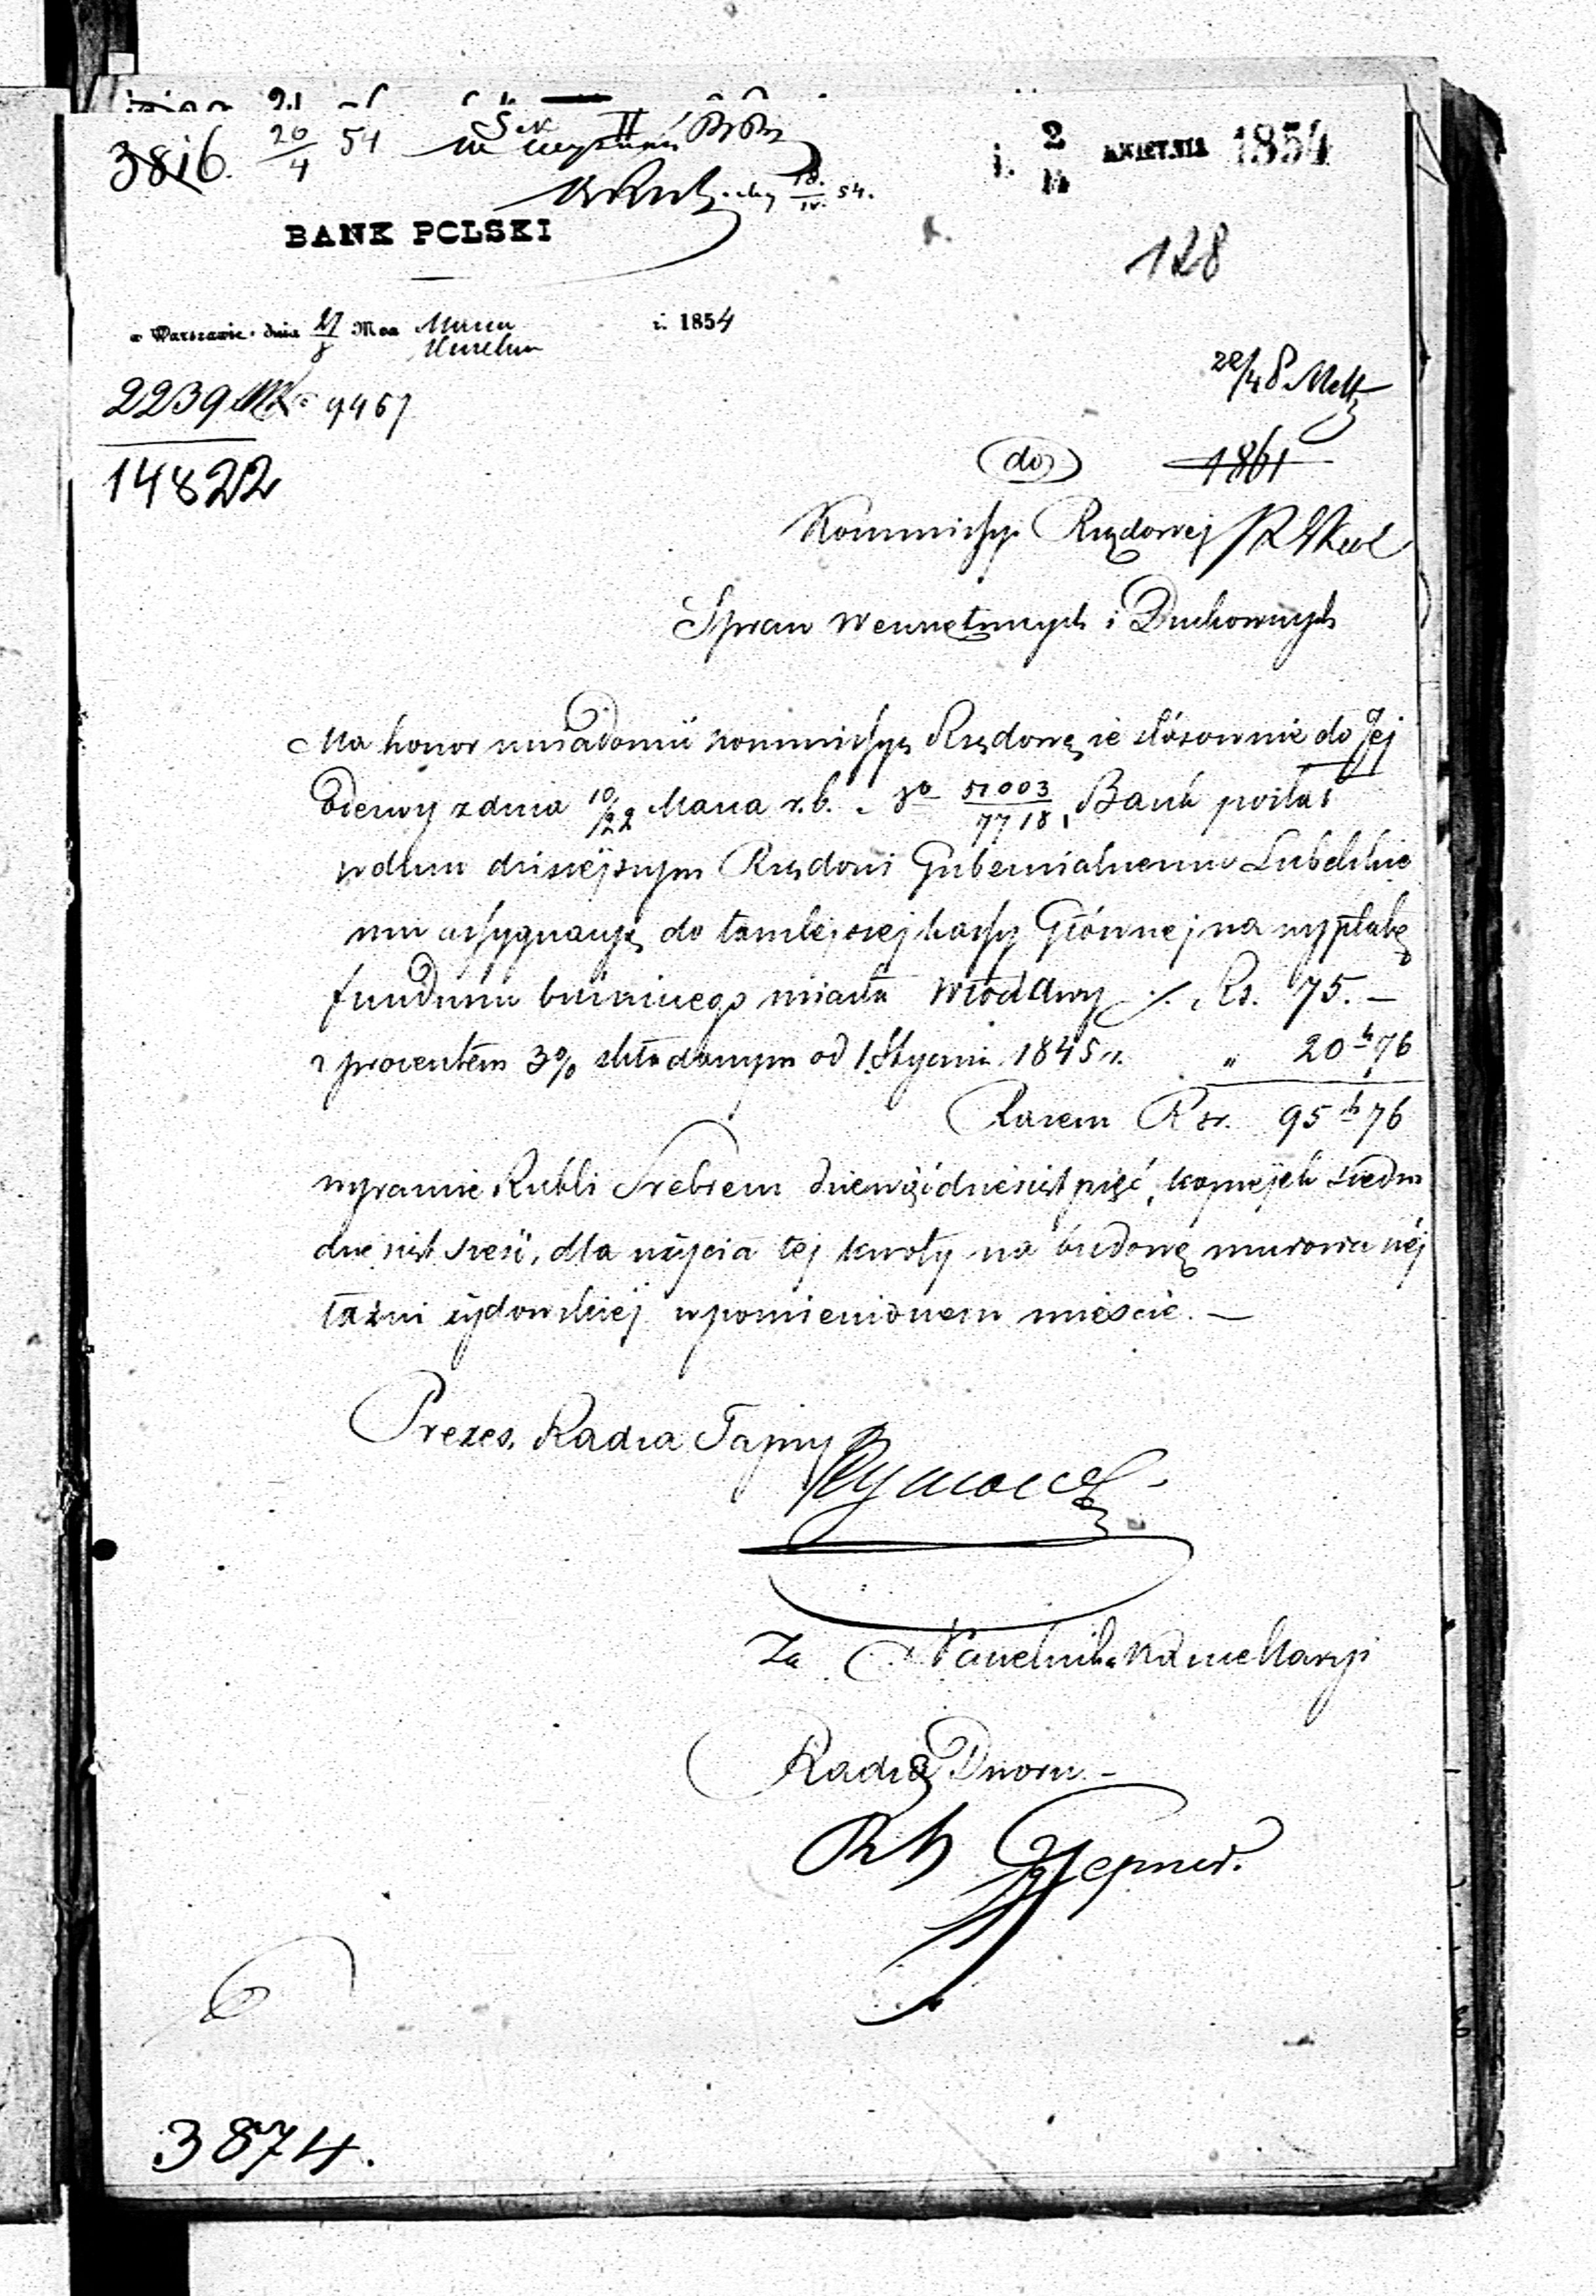 3816. 20/4 54 Sek II
18/IV. 54.
2/14 KWIETNIA 1854
128
BANK POLSKI
w Warszawie dnia 27/8 M-ca Marca
Kwietnia r. 1854
2239 9467
14822
1861
do
Kommissyi Rządowej
Spraw Wewnętrznych i Duchownych
Ma honor uwiadomić Kommissyę Rządową że stósownie do Jej
Odezwy z dnia 10/22 Marca r. b. No 51003/7718, Bank posłał
w dniu dzisiejszym Rządowi Gubernialnemu Lubelskie
mu assygnacyę do tamtejszej kassy Głównej na wypłatę
funduszu bóżniczego miasta Włodawy Rs. 75. —
z procentem 3% składanym od 1 Stycznia 1845 r. „ 20 k 76
Razem R sr. 95 k 76
wyraźnie Rubli Srebrem dziewięćdziesiąt pięć, kopiejek siedm
dziesiąt sześć, dla użycia tej kwoty na budowę murowanéj
łaźni żydowskiej w pomienionem mieście. —
Prezes, Radca Tajny
Za Naczelnika Kancellaryi
Radca Dworu
3874.